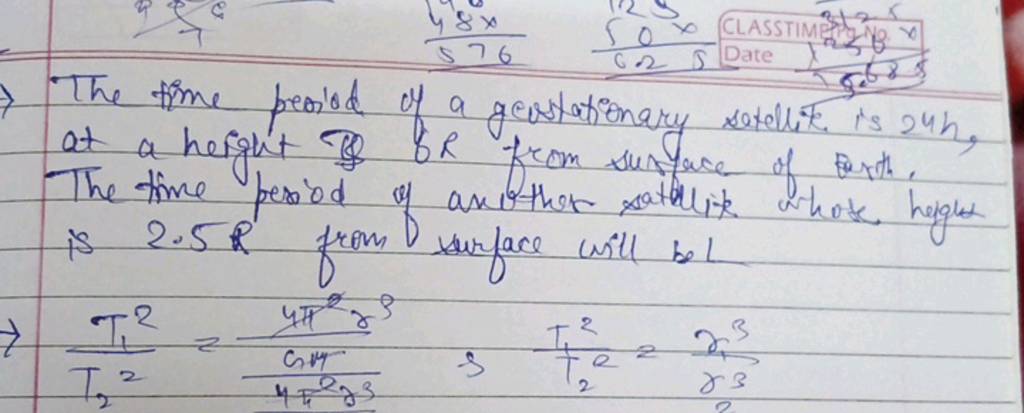 48x
576
50x
625
CLASSTIME Pg. No.
Date
The time period of a geostationary satellite is 24h,
at a height 6R from surface of Earth.
The time period of another satellite whose height
is 2.5R from surface will be
T₁² / T₂² = 4π²r³ / GM / 4π²r³ ; T₁² / T₂² = r₁³ / r₂³